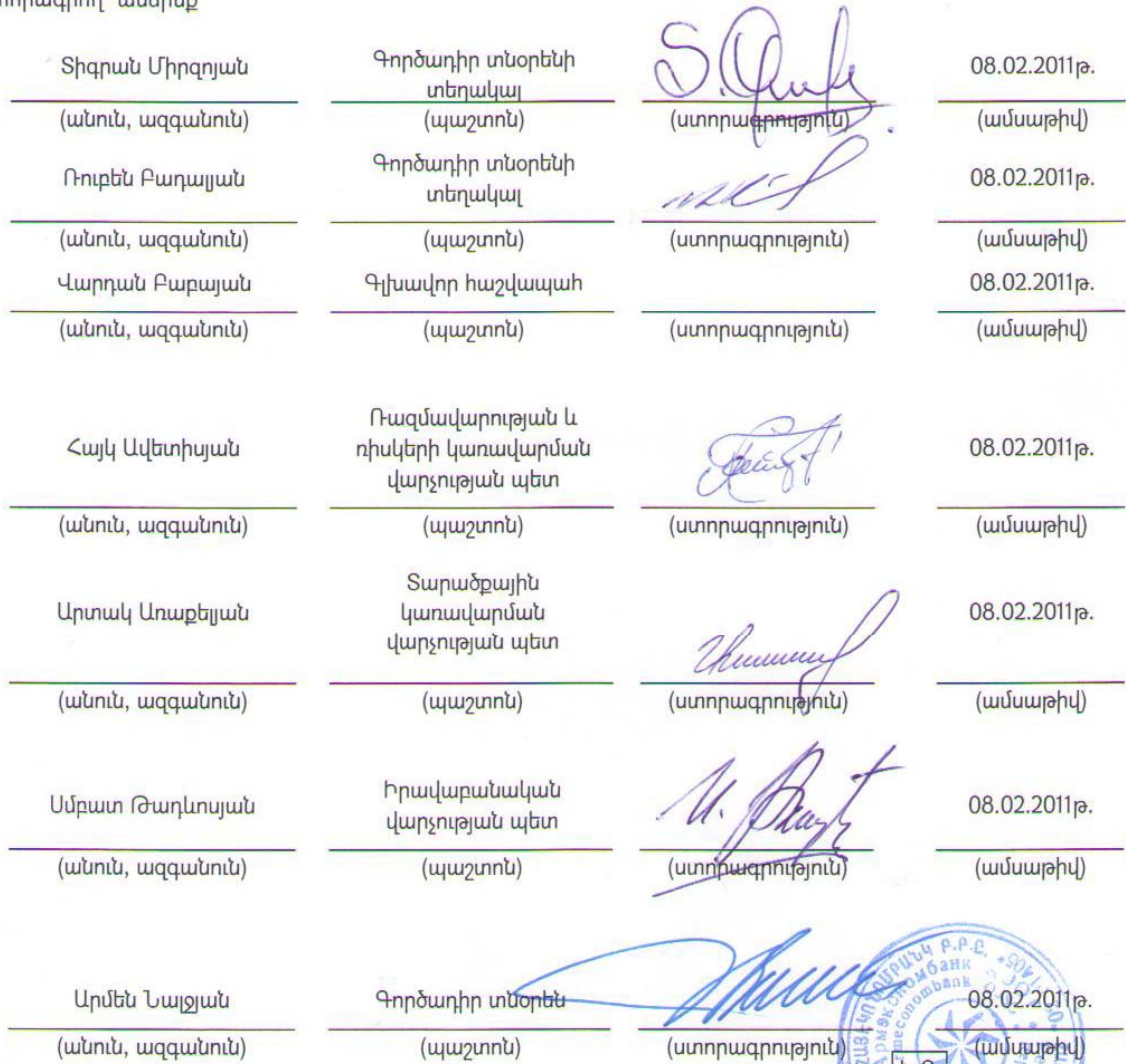 անձինք
Տիգրան Միրզոյան
Գործադիր տնօրենի
տեղակալ
08.02.2011թ.
(անուն, ազգանուն) (պաշտոն) (ստորագրություն) (ամսաթիվ)
Ռուբեն Բադալյան
Գործադիր տնօրենի
տեղակալ
08.02.2011թ.
(անուն, ազգանուն) (պաշտոն) (ստորագրություն) (ամսաթիվ)
Վարդան Բաբայան Գլխավոր հաշվապահ 08.02.2011թ.
(անուն, ազգանուն) (պաշտոն) (ստորագրություն) (ամսաթիվ)
Հայկ Ավետիսյան
Ռազմավարության և
ռիսկերի կառավարման
վարչության պետ
08.02.2011թ.
(անուն, ազգանուն) (պաշտոն) (ստորագրություն) (ամսաթիվ)
Արտակ Առաքելյան
Տարածքային
կառավարման
վարչության պետ
08.02.2011թ.
(անուն, ազգանուն) (պաշտոն) (ստորագրություն) (ամսաթիվ)
Սմբատ Թադևոսյան
Իրավաբանական
վարչության պետ
08.02.2011թ.
(անուն, ազգանուն) (պաշտոն) (ստորագրություն) (ամսաթիվ)
Արմեն Նալջյան Գործադիր տնօրեն 08.02.2011թ.
(անուն, ազգանուն) (պաշտոն) (ստորագրություն) (ամսաթիվ)